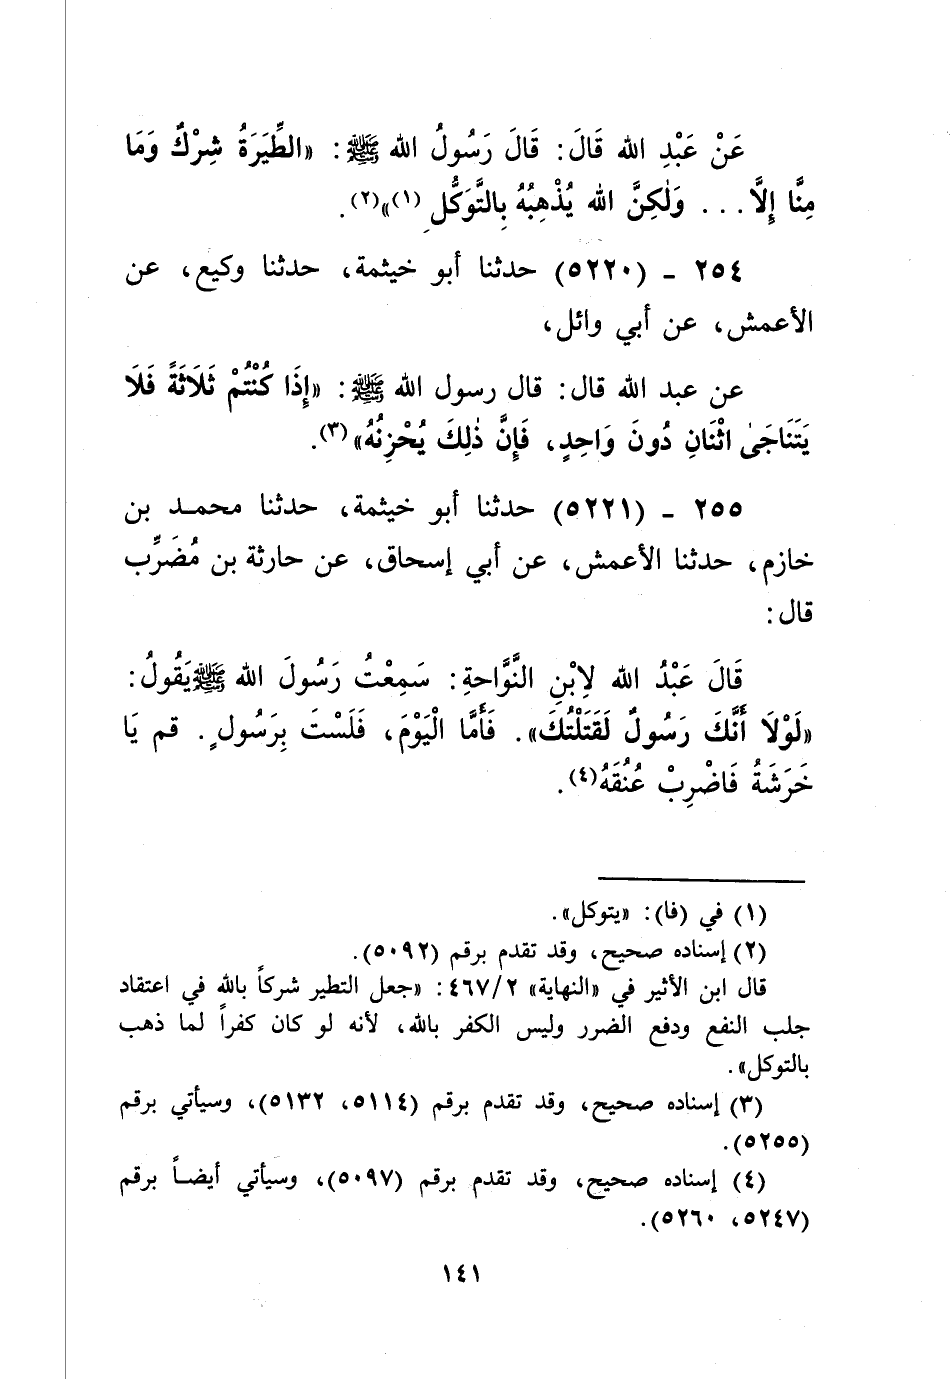 عَنْ عَبْدِ الله قَالَ: قَالَ رَسُولُ الله ﷺ: «الطِّيَرَةُ شِرْكٌ وَمَا
مِنَّا إِلَّا... وَلٰكِنَّ الله يُذْهِبُهُ بِالتَّوَكُّلِ (١)»(٢).
٢٥٤ - (٥٢٢٠) حدثنا أبو خيثمة، حدثنا وكيع، عن
الأعمش، عن أبي وائل،
عن عبد الله قال: قال رسول الله ﷺ: «إِذَا كُنْتُمْ ثَلَاثَةً فَلَا
يَتَنَاجَىٰ اثْنَانِ دُونَ وَاحِدٍ، فَإِنَّ ذٰلِكَ يُحْزِنُهُ»(٣).
٢٥٥ - (٥٢٢١) حدثنا أبو خيثمة، حدثنا محمد بن
خازم، حدثنا الأعمش، عن أبي إسحاق، عن حارثة بن مُضَرِّب
قال:
قَالَ عَبْدُ الله لِابْنِ النَّوَّاحةِ: سَمِعْتُ رَسُولَ الله ﷺ يَقُولُ:
«لَوْلَا أَنَّكَ رَسُولٌ لَقَتَلْتُكَ». فَأَمَّا الْيَوْمَ، فَلَسْتَ بِرَسُولٍ. قم يَا
خَرَشَةُ فَاضْرِبْ عُنُقَهُ(٤).
(١) في (فا): «يتوكل».
(٢) إسناده صحيح، وقد تقدم برقم (٥٠٩٢).
قال ابن الأثير في «النهاية» ٤٦٧/٢: «جعل التطير شركاً بالله في اعتقاد
جلب النفع ودفع الضرر وليس الكفر بالله، لأنه لو كان كفراً لما ذهب
بالتوكل».
(٣) إسناده صحيح، وقد تقدم برقم (٥١١٤، ٥١٣٢)، وسيأتي برقم
(٥٢٥٥).
(٤) إسناده صحيح، وقد تقدم برقم (٥٠٩٧)، وسيأتي أيضاً برقم
(٥٢٤٧، ٥٢٦٠).
١٤١